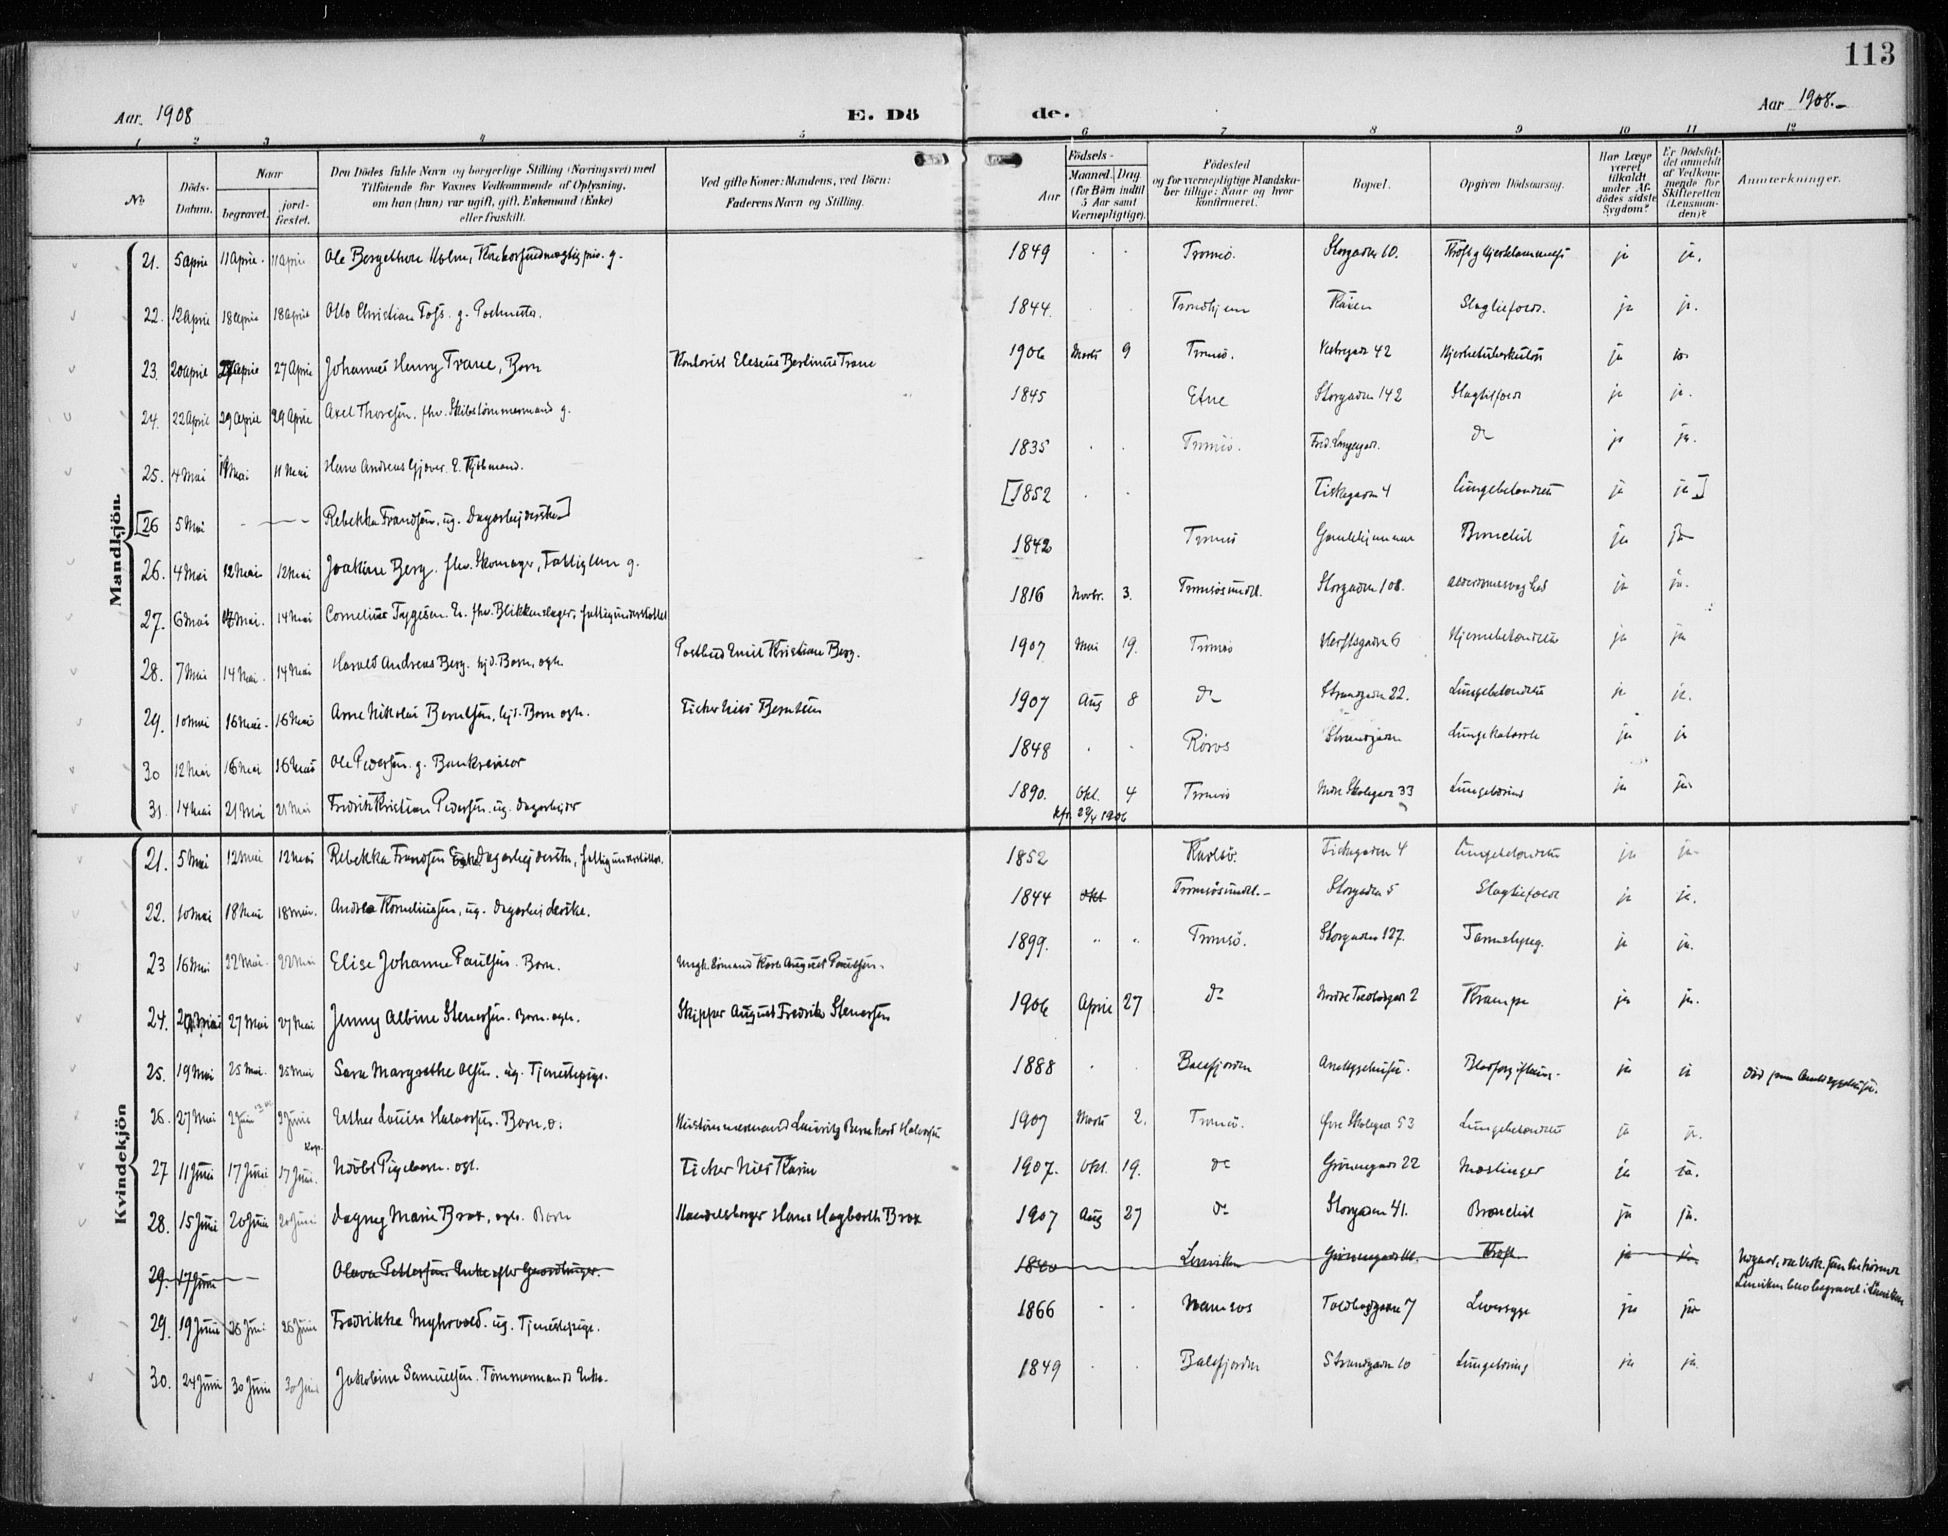 113
Aar 1908 E. Dö de. Aar 1908.
1 2 3 4 5 6 7 8 9 10 11 12
No. Döds-Datum. Naar begravet. jord-fæstet. Den Dödes fulde Navn og borgerlige Stilling (Næringsvei) med Tilföiende for Voxnes Vedkommende af Oplysning, om han (hun) var ugift, gift, Enkemand (Enke) eller fraskilt. Ved gifte Koner: Mandens, ved Börn: Faderens Navn og Stilling. Födsels- Aar Maaned. Dag. (for Börn indtil 5 Aar samt Værnepligtige). Födested og for værnepligtige Mandskaber tillige: Naar og hvor konfirmeret. Bopæl. Opgiven Dödsaarsag. Har Læge været tilkaldt under Afdödes sidste Sygdom? Er Dödsfaldet anmeldt af Vedkommende for Skifteretten (Lensmanden)? Anmærkninger.
Mandkjön.
21. 5 April 11 April 11 April Ole Bergethon Holm, g. 1849 Tromsö. Storgaden 10. ja ja.
22. 12 April 18 April 18 April Otto Christian Foss. g. Postmester. 1844. Trondhjem Slagtilfælde. ja ja.
23. 20 April 27 April 27 April Johannes Henry Trane, Barn Kontorist Eleseus Berlinus Trane 1906 Marts 9 Tromsö. Vestregade 42 ja ja
24. 22 April 29 April 29 April Axel Thoresen. fhv. Skibstömmermand g. 1845 Etne Storgaden 142 Slagtilfælde ja ja.
25. 4 Mai 11 Mai 11 Mai Hans Andreas Gjæver. E. Kjöbmand. 1835 Tromsö. do ja ja.
[26 5 Mai - - - Rebekka Frandsen, ug. Dagarbejderske] [1852 Fiskegaden 4 Lungebetændelse ja ja]
26. 4 Mai 12 Mai 12 Mai Joakim Berg. fhv. Skomager, Fattiglem g. 1842 Tromsö Bronchit ja ja
27. 6 Mai 14 Mai. 14 Mai Cornelius Tygesen. E. fhv. Blikkenslager, fattigunderstöttet 1816 Novbr. 3. Tromsösundet. Storgaden 108. Alderdomssvaghed ja ja.
28. 7 Mai 14 Mai. 14 Mai Harald Andreas Berg. hjd. Barn, egte. Postbud Emil Kristian Berg. 1907 Mai 19. Tromsö 6 Hjernebetændelse ja ja
29. 10 Mai 16 Mai. 16 Mai Arne Nikolai Berntsen, hjd. Barn egte. Fisker Nils Berntsen 1907 Aug 8 do Strandgaden 22. Lungebetændelse ja ja.
30 12 Mai 16 Mai 16 Mai Ole Pedersen. g. Bankrevisor 1848 Röros Strandgaden Lungekatarrh ja ja
31. 14 Mai 21 Mai 21 Mai Fredrik Kristian Pedersen. ug. Dagarbejder 1890. Okt. 4 Tromsö Nore Skolegade 33 ja ja
kfr. 29/4 1906
Kvindekjön
21. 5 Mai 12 Mai 12 Mai Rebekka Frandsen Enke Dagarbejderske, fattigunderstöttet. 1852 Karlsö. Fiskegaden 4 Lungebetændelse ja ja
22. 10 Mai 18 Mai 18 Mai. Andrea Korneliussen, ug. Dagarbejderske. 1844 Okt Tromsösundet. Storgaden 5 Slagtilfælde ja ja.
23 16 Mai 22 Mai. 22 Mai Elise Johanne Paulsen. Barn. Karl August Paulsen. 1899. " " Tromsö. Storgaden 127. ja ja.
24. 20 Mai 27 Mai 27 Mai Jenny Albine Stenersen. Barn. egte. Skipper August Fredrik Stenersen 1906 April 27 do Nordre Toldbodgade 2 Krampe ja ja.
25. 19 Mai 25 Mai. 25 Mai Sara Margrethe Olsen. ug. Tjenestepige. 1888 Balsfjorden Amtssygehuset. Blodforgiftning. ja ja Död paa Amtssygehuset.
26. 27 Mai 2 Juni 2 Juni Esther Louise Halvorsen. Barn. Hustömmermand Lauritz Bernhard Halvorsen 1907 Marts 2. Tromsö. Övre Skolegade 53 Lungebetændelse ja ja.
27 11 Juni 17 Juni 17 Juni. Nödöbt Pigebarn. egt. Fisker Nils 1907. Okt. 19. do Grönnegade 22 Mæslinger ja ja.
28. 15 Juni 20 Juni 20 Juni Dagny Marie Brox, egte. Barn Handelsborger Hans Hagbarth Brox 1907 Aug 27 do Storgaden 41. Bronchit ja ja.
29. 17 Juni Olava Pettersen Enke efter Gaardbruger. 1840 Lenviken Kræft ja ja
29. 19 Juni 26 Juni 26 Juni Fredrikke Myhrvold. ug. Tjenestepige. 1866 Namsos Toldbodgaden 7 Leversyge ja ja
30. 24 Juni 30 Juni 30 Juni Jakobine Samuelsen. Tömmermands Enke. 1849 Balsfjorden Strandgaden 10 ja ja